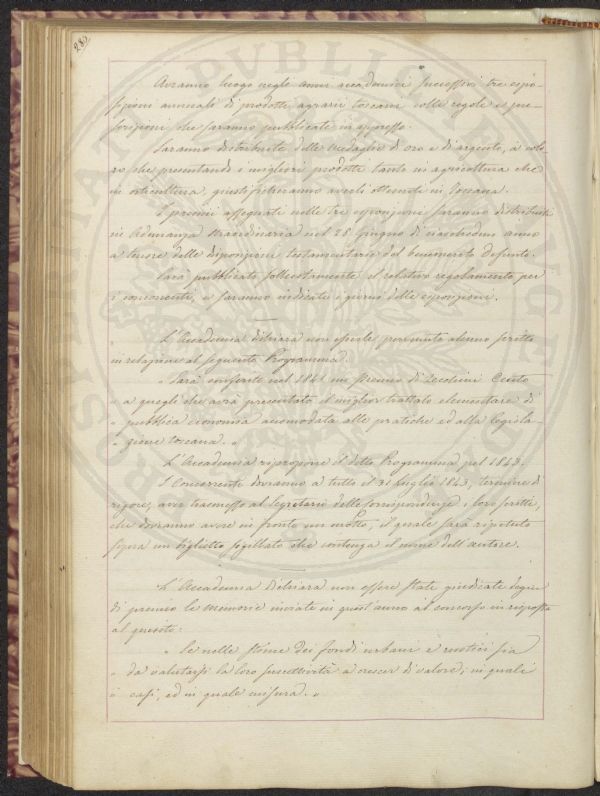 280.
Avranno luogo negli anni accademici successivi tre espo-
sizioni annuali di prodotti agrarii toscani colle regole e pre-
scrizioni che saranno pubblicate in appresso.
Saranno distribuite delle Medaglie di oro e di argento, a colo-
ro che presentando i migliori prodotti tanto in agricoltura che
in orticultura, giustificheranno averli ottenuti in Toscana.
I premi assegnati nelle tre esposizioni saranno distribuiti
in Adunanza straordinaria nel 28 Giugno di ciaschedun anno
a tenore delle disposizioni testamentarie del benemerito defunto.
Sarà pubblicato sollecitamente il relativo regolamento per
i concorrenti, e saranno indicati i giorni delle esposizione.
L'Accademia dichiara non essersi presentato alcuno scritto
in relazione al seguente Programma.
" Sarà conferito nel 1841 un premio di Zecchini Cento
" a quegli che avrà presentato il miglior trattato elementare di
" pubblica economia accomodata alle pratiche ed alla legisla-
" zione toscana. "
L'Accademia ripropone il detto Programma pel 1843.
I Concorrenti dovranno a tutto il 31 Luglio 1843, termine di
rigore, aver trasmesso al Segretario delle Corrispondenze i loro scritti,
che dovranno avere in fronte un motto, il quale sarà ripetuto
sopra un biglietto sigillato che contenga il nome dell'autore.
L'Accademia Dichiara non essere state giudicate degne
di premio le memorie inviate in quest'anno al concorso in risposta
al quesito:
" Se nelle stime dei fondi urbani e rustici sia
" da valutarsi la loro suscettività a crescer di valore; in quali
" casi, ed in quale misura. "